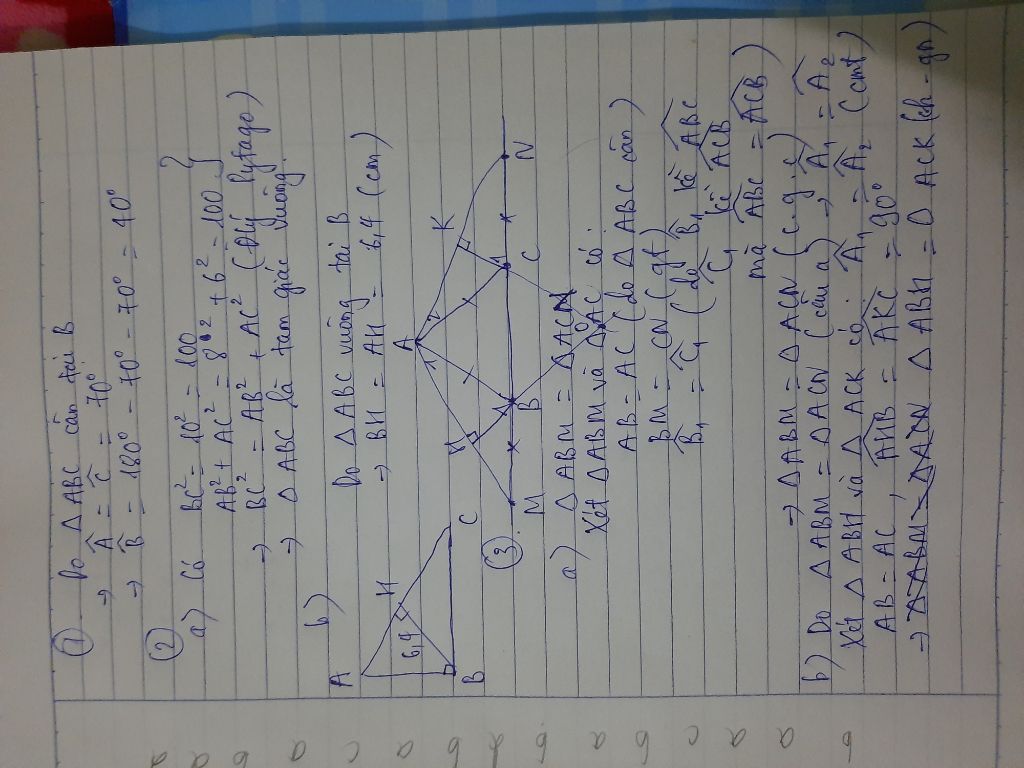 ① Do △ABC cân tại B
→ Â = Ĉ = 70°
→ B̂ = 180° - 70° - 70° = 40°
②
a) Có BC² = 10² = 100
AB² + AC² = 8² + 6² = 100
→ BC² = AB² + AC² (Đlý Pytago)
→ △ABC là tam giác vuông
b) Do △ABC vuông tại B
→ BH = AH = 6,4 (cm)
A
H
6,4
B
C
③
A
H
K
M
B
C
N
O
a) △ABM = △ACN
Xét △ABM và △AC có:
AB = AC (do △ABC cân)
BM = CN (gt)
B̂₁ = Ĉ₁ (do B̂₁ kề ABC
Ĉ₁ kề ACB
mà ABC = ACB)
→ △ABM = △ACN (c.g.c)
b) Do △ABM = △ACN (câu a) → Â₁ = Â₂
Xét △ABH và △ACK có: Â₁ = Â₂ (cmt)
AB = AC, AHB = AKC = 90°
→ △ABM = △ACN △ABH = △ACK (ch - gn)
a
a
b
a
c
a
b
d
b
a
b
c
a
a
b